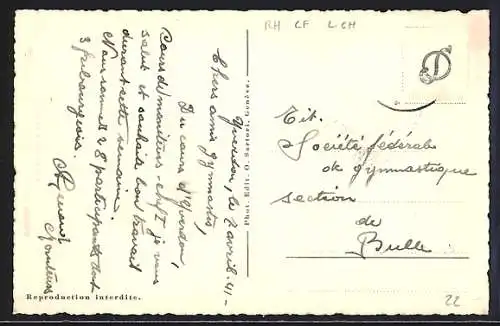 RH CF LCH
Yverdon, le 2 avril. 41-
Chers amis gymnastes,
Du cours d'Yverdon,
Cours de moniteurs-chef I je vous
salue et souhaite bon travail
durant cette semaine.
Nous sommes 28 participants dont
3 fribourgeois.
Phot. Edit. O. Sartori, Genève.
Tit.
Société fédérale
de gymnastique
section
de
Bulle
Reproduction interdite.
22